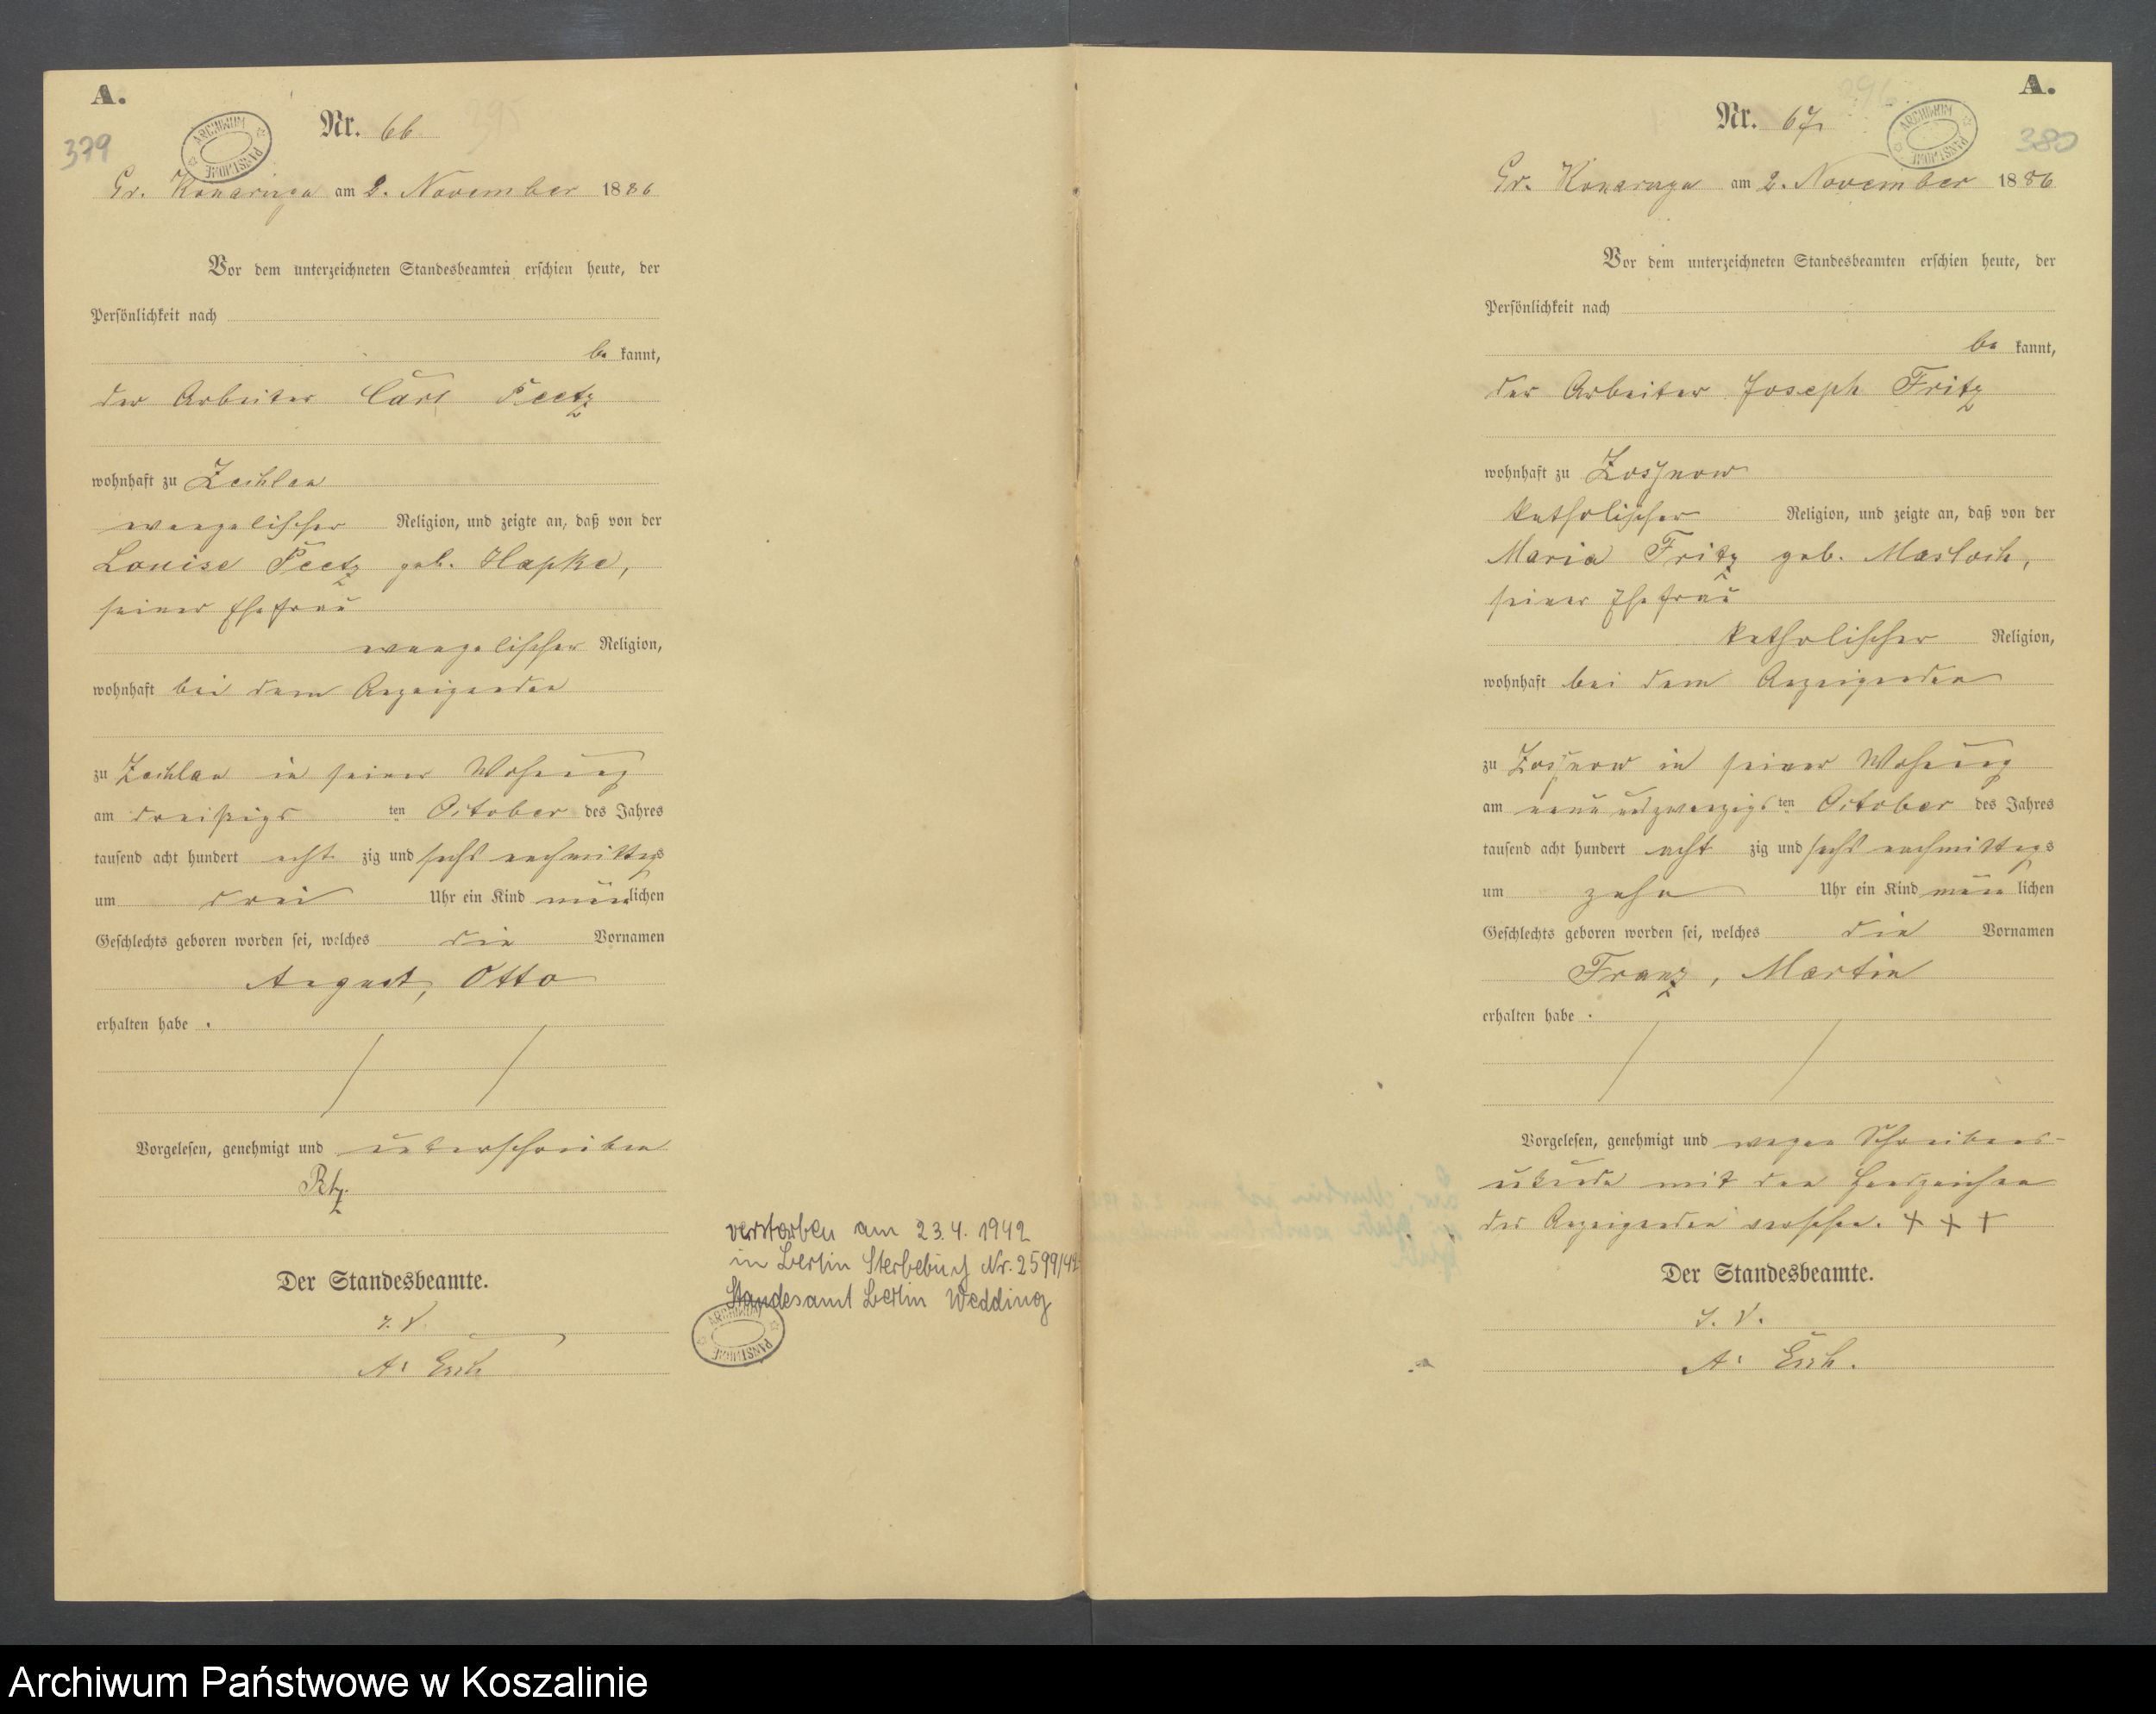 A.
379
Nr. 66
ARCHIWUM PAŃSTWOWE
Gr. Konarzyn am 2. November 1886
Vor dem unterzeichneten Standesbeamten erschien heute, der
Persönlichkeit nach
be kannt,
der Arbeiter Carl Peetz
wohnhaft zu Zechlau
evangelischer Religion, und zeigte an, daß von der
Louise Peetz geb. Hapke,
seiner Ehefrau
evangelischer Religion,
wohnhaft bei dem Anzeigenden
zu Zechlau in seiner Wohnung
am dreißigs ten October des Jahres
tausend acht hundert acht zig und sechs nachmittags
um drei Uhr ein Kind männlichen
Geschlechts geboren worden sei, welches die Vornamen
August, Otto
erhalten habe.
Vorgelesen, genehmigt und unterschrieben
Der Standesbeamte.
I. V.
A. Esch
verstorben am 23.4.1942
in Berlin Sterbebuch Nr. 2599/42
Standesamt Berlin Wedding
ARCHIWUM PAŃSTWOWE
A.
296
380
Nr. 67
ARCHIWUM PAŃSTWOWE
Gr. Konarzyn am 2. November 1886
Vor dem unterzeichneten Standesbeamten erschien heute, der
Persönlichkeit nach
be kannt,
der Arbeiter Joseph Fritz
wohnhaft zu Zossnow
katholischer Religion, und zeigte an, daß von der
Maria Fritz geb. Masloch,
seiner Ehefrau
katholischer Religion,
wohnhaft bei dem Anzeigenden
zu Zossnow in seiner Wohnung
am neunundzwanzigs ten October des Jahres
tausend acht hundert acht zig und sechs nachmittags
um zehn Uhr ein Kind männ lichen
Geschlechts geboren worden sei, welches die Vornamen
Franz, Martin
erhalten habe.
Vorgelesen, genehmigt und wegen Schreibens-
unkunde mit den Handzeichen
des Anzeigenden versehen. + + +
Der Standesbeamte.
I. V.
A. Esch.
Archiwum Państwowe w Koszalinie